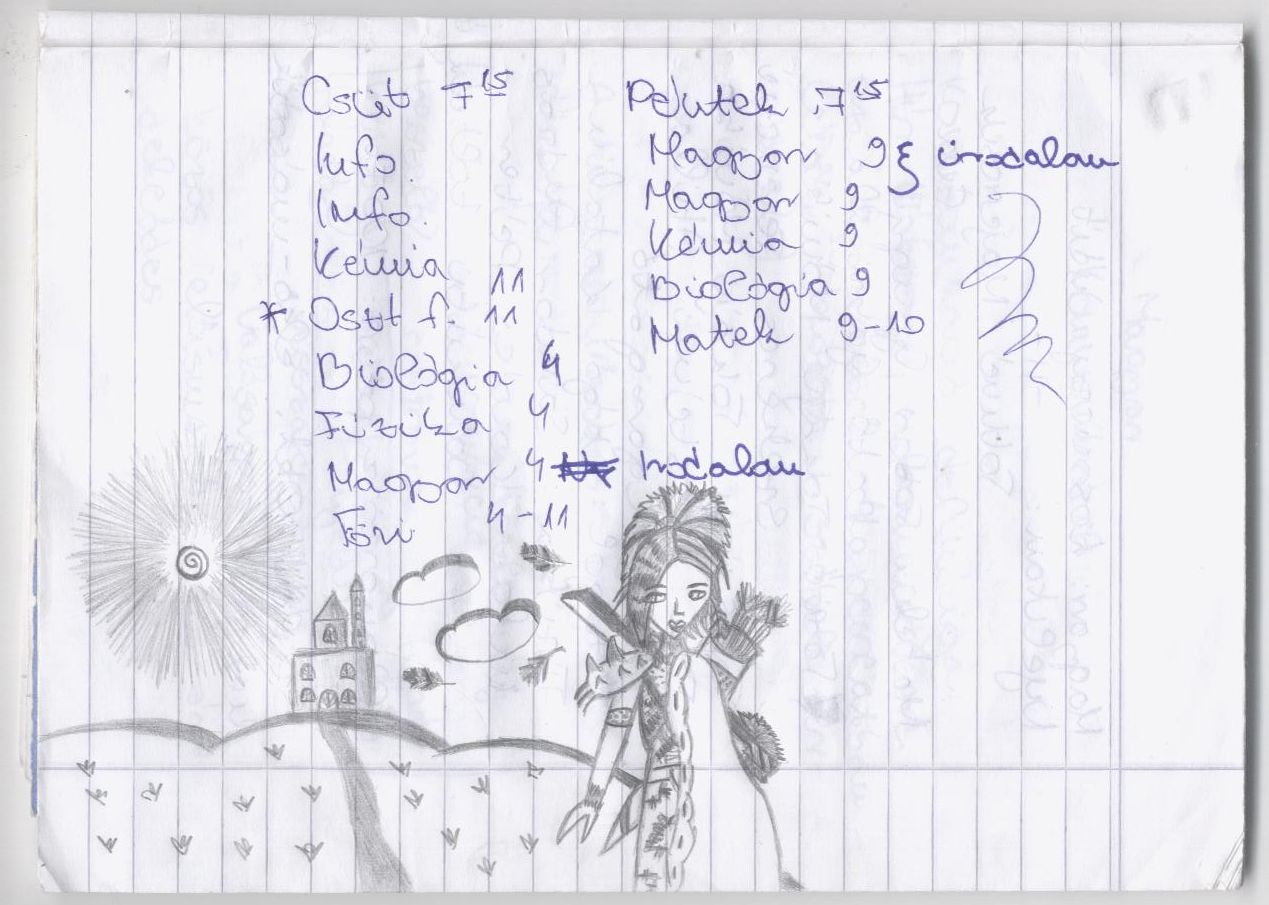 Csüt 7 15
Info.
Info.
Kémia 11
* Oszt f. 11
Biológia 4
Fizika 4
Magyar 4 Irodalom
Töri 4-11
Péntek 7 15
Magyar 9 } irodalom
Magyar 9
Kémia 9
Biológia 9
Matek 9-10